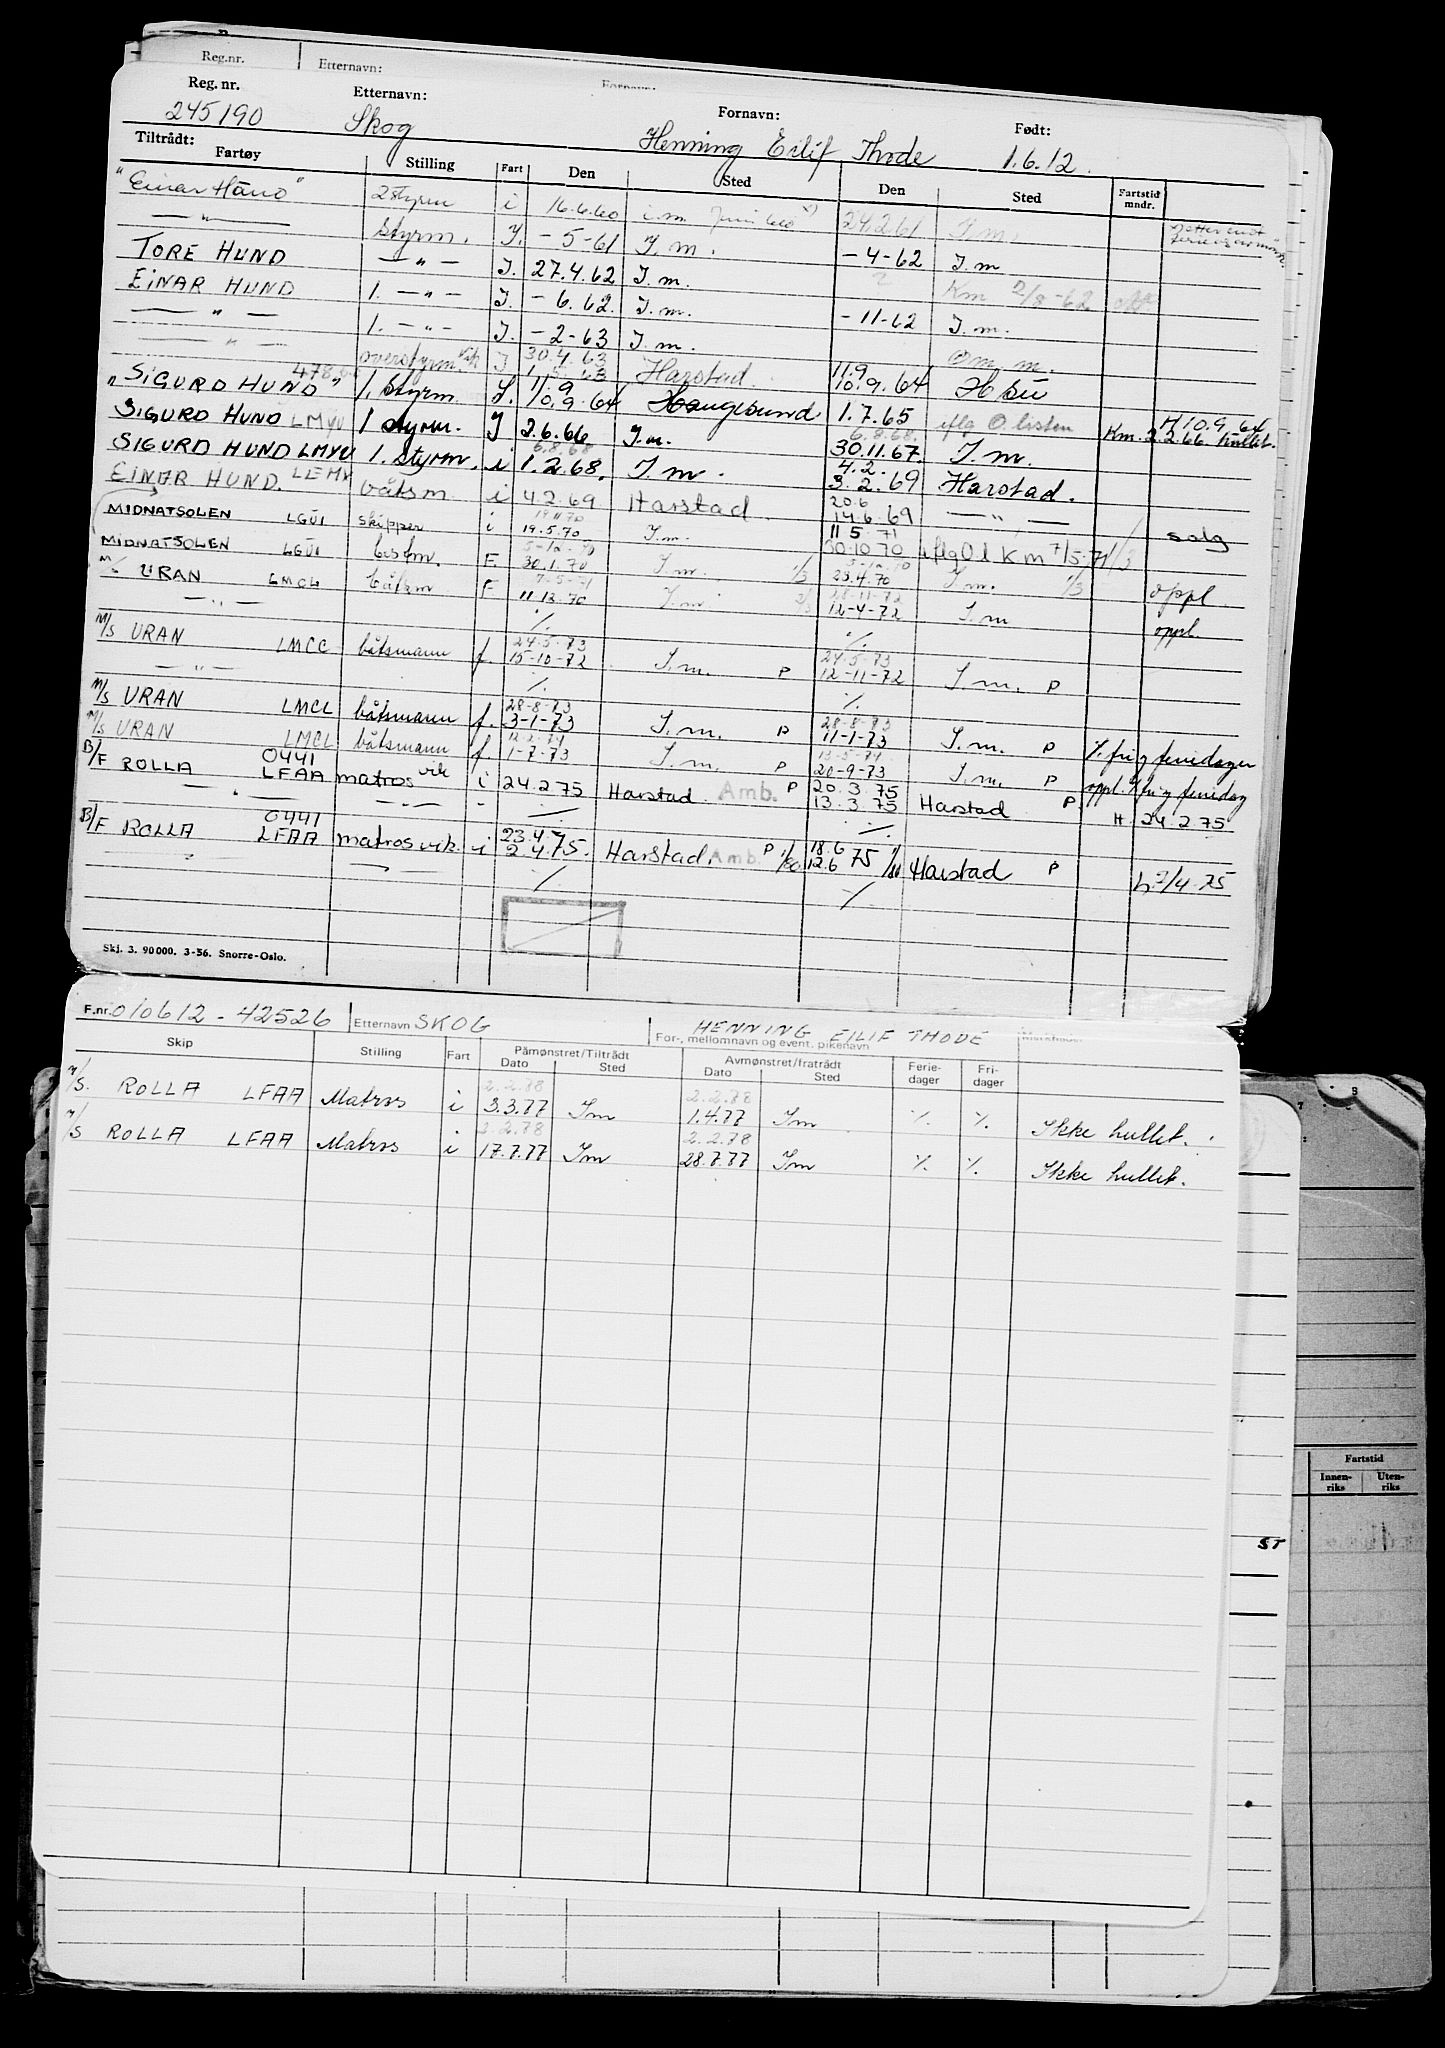 Reg.nr. Etternavn: Fornavn:
Reg. nr. Etternavn: Fornavn: Født:
245190 Skog Henning Eilif Thode 1.6.12.
Tiltrådt:
Fartøy Stilling Fart Den Sted Den Sted Fartstid mndr.
"Einar Hund" 2 styrm i 16.6.60 i.m. Juni 60 x) 24.2.61 I.m.
— " — Styrm. I. - 5 - 61 I.m. - 4 - 62 I.m
TORE HUND — " — I. 27.4.62 I.m. Km 2/8-62
EINAR HUND 1. — " — I. - 6. 62. I.m. - 11 - 62 I.m.
— " — 1. — " — I. - 2 - 63 I.m.
— " — overstyrm. vik I 30.4.63 Harstad 11.9
"SIGURD HUND" 1. Styrm. I. 11.9 10.9.64 Haugesund 10.9.64 H 10.9.64
SIGURD HUND LMYU 1 styrm. I 2.6.66 I.m. 1.7.65 iflg O.listen Km. 2.2.66 hullet.
SIGURD HUND LMYU 1. Styrm. i 6.8.68 1.2.68. I.m. 6.8.68. 30.11.67. I.m.
EINAR HUND. LEMV båtsm i 4.2.69 Harstad 4.2. 3.2.69 Harstad.
MIDNATSOLEN LGUI skipper i 19.5.70 I.m. 20.6 14.6.69 — " — salg
MIDNATSOLEN LGUI båtsm. F 5-12-70 30.1.70 I.m. 1/3 11.5.71 30.10.70 iflg O.l Km 7/5-71 1/3
M/S URAN LMCL båtsm F 7-5-71 11.12.70 I.m. 2/3 23.4.70 I.m. 1/3 oppl.
— " — ./. 28-11-72 12-4-72 I.m oppl
M/S URAN LMCC båtsmann f. 24.5.73 15-10-72 I.m. P 24.5-73 12-11-72 I.m. P
— " — ./. ./.
M/S URAN LMCL båtsmann f. 28-8-73 3-1-73 I.m. P 28-8-73 11-1-73 I.m. P ./. fri og feriedager
M/S URAN LMCL båtsmann f. 12-2-74 1-7-73 I.m. P 13-5-74 20-9-73 I.m. P oppl. ./. fri og feriedag
B/F ROLLA 0441 LFAA matros vik i 24.2.75 Harstad Amb. P 20.3.75 13.3.75 Harstad P. H. 24.2.75
— " — — " — - ./. ./.
B/F ROLLA 0441 LFAA matros vik. i 23.4.75 2.4.75. Harstad. Amb. P 1/80 18.6 12.6 75 1/80 Harstad P h 2/4.75
— " — — " — ./. ./.
Skj. 3. 90000. 3-56. Snorre-Oslo.
F.nr. 010612 - 42526 Etternavn SKOG For-, mellomnavn og event. pikenavn HENNING EILIF THODE
Skip Stilling Fart Påmønstret/Tiltrådt Avmønstret/fratrådt Ferie- dager Fri- dager
Dato Sted Dato Sted
M/S. ROLLA LFAA Matros i 2.2.78 3.3.77 Im 2.2.78 1.4.77 Im ./. ./. Ikke hullet.
M/S ROLLA LFAA Matros i 2.2.78 17.7.77 Im 2.2.78 28.7.77 Im ./. ./. Ikke hullet.
Fartstid
Innen- riks Uten- riks
ST